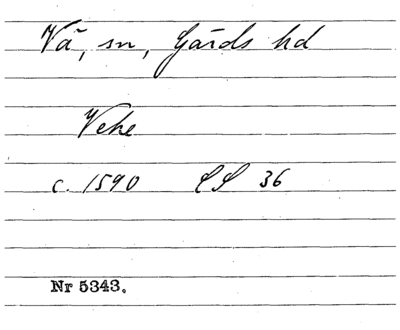 Vä, sn, Gärds hd
Vehe
c. 1590 LS 36
Nr 5343.